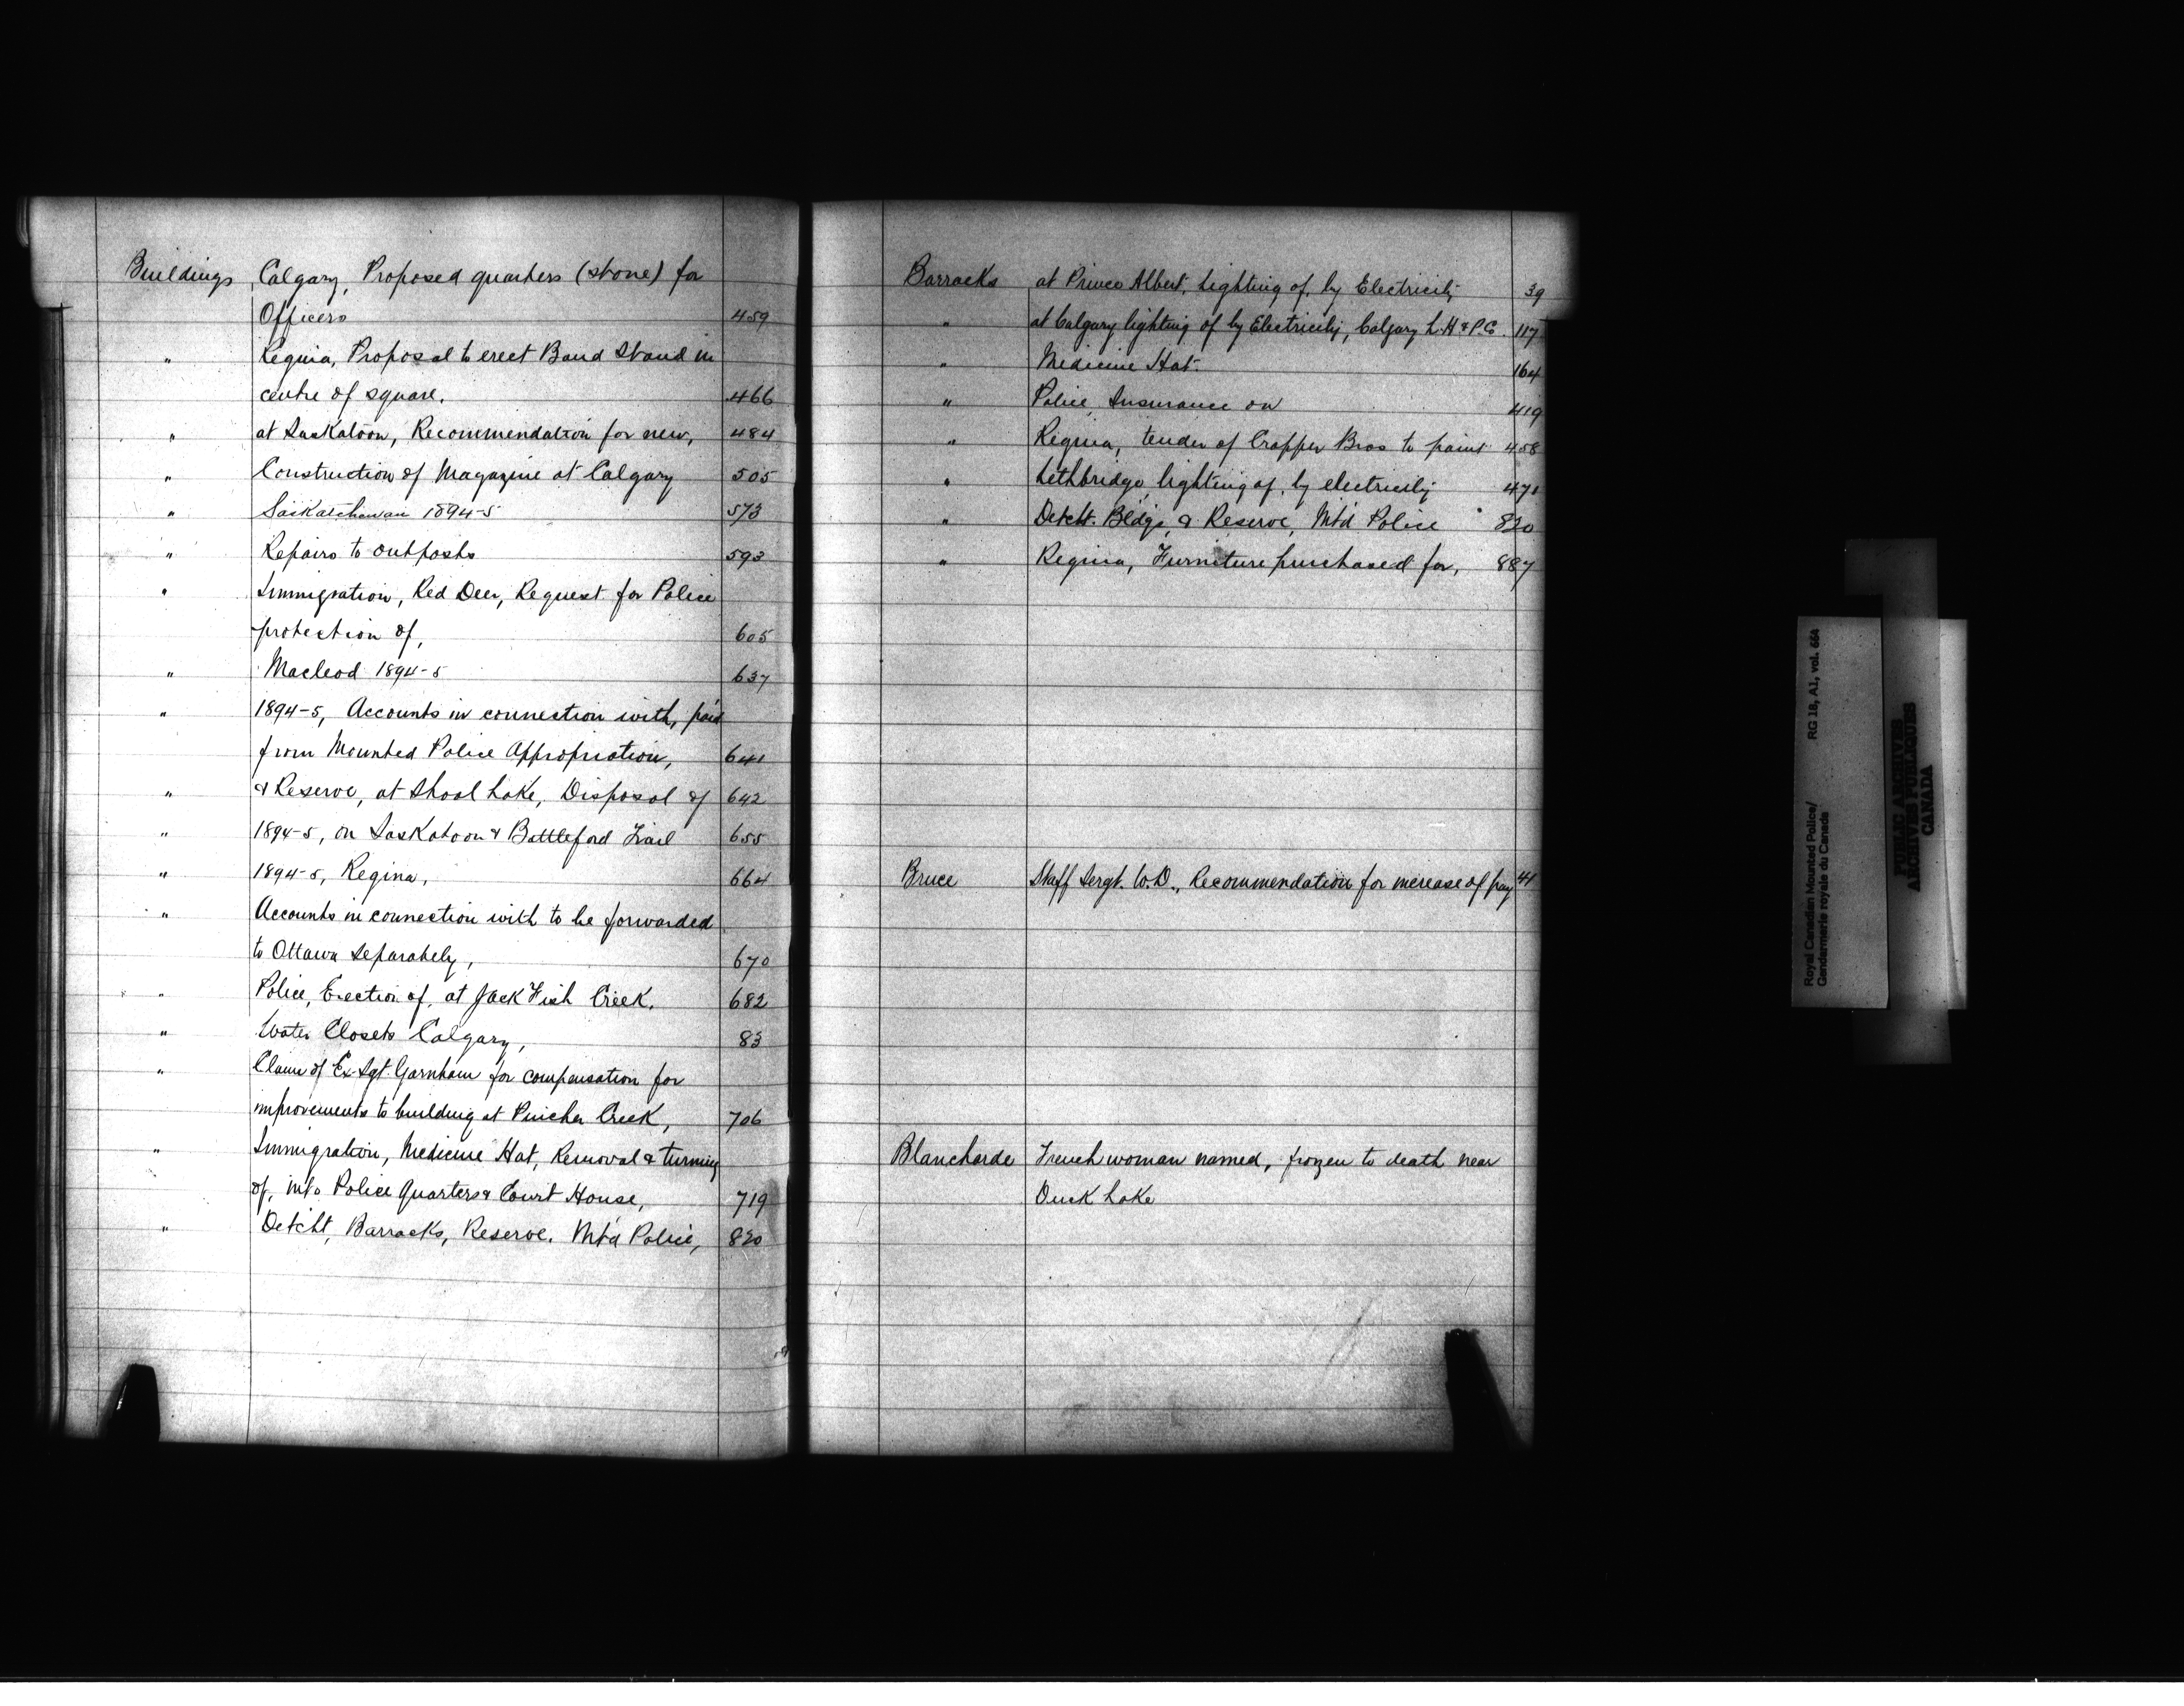 Buildings Calgary, Proposed quarters (stone) for
Officers 459
" Regina, Proposal to erect Band Stand in
centre of square. 466
" at Saskatoon, Recommendation for new, 484
" Construction of Magazine at Calgary 505
" Saskatchewan 1894-5 573
" Repairs to outposts 593
" Immigration, Red Deer, Request for Police
protection of, 605
" Macleod 1894-5 637
" 1894-5, Accounts in connection with, paid
from Mounted Police Appropriation, 641
" & Reserve, at Shoal Lake, Disposal of 642
" 1894-5, on Saskatoon & Battleford Trail 655
" 1894-5, Regina, 664
" Accounts in connection with to be forwarded
to Ottawa separately, 670
" Police, Erection of, at Jack Fish Creek. 682
" Water Closets Calgary, 83
" Claim of Ex-Sgt. Garnham for compensation for
improvements to building at Pincher Creek, 706
" Immigration, Medicine Hat, Removal & turning
of, into Police Quarters & Court House, 719
" Detcht, Barracks, Reserve. Mtd Police, 820
Barracks at Prince Albert, Lighting of, by Electricity 39
" at Calgary lighting of by Electricity, Calgary L.H & P.Co. 117
" Medicine Hat. 164
" Police, Insurance on 419
" Regina, tender of Cropper Bros to paint 458
" Lethbridge, lighting of, by electricity 471
" Detcht. Bldgs, & Reserve, Mtd Police 820
" Regina, Furniture purchased for, 887
Bruce Staff Sergt. W.D., Recommendation for increase of pay 41
Blancharde French woman named, frozen to death near
Duck Lake
Royal Canadian Mounted Police/ RG 18, A1, vol. 664
Gendarmerie royale du Canada
PUBLIC ARCHIVES
ARCHIVES PUBLIQUES
CANADA